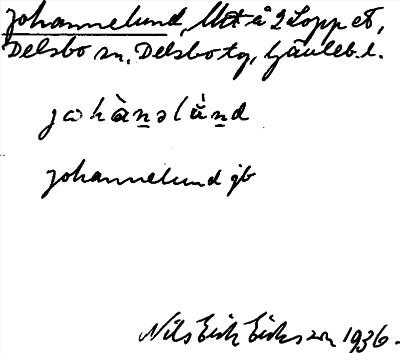 Johannelund, Utt å 2 Loppet,
Delsbo sn, Delsbo tg, Gävleb. l.
johànəlùnd
Johannelund gb
Nils Erik Eriksson 1936.